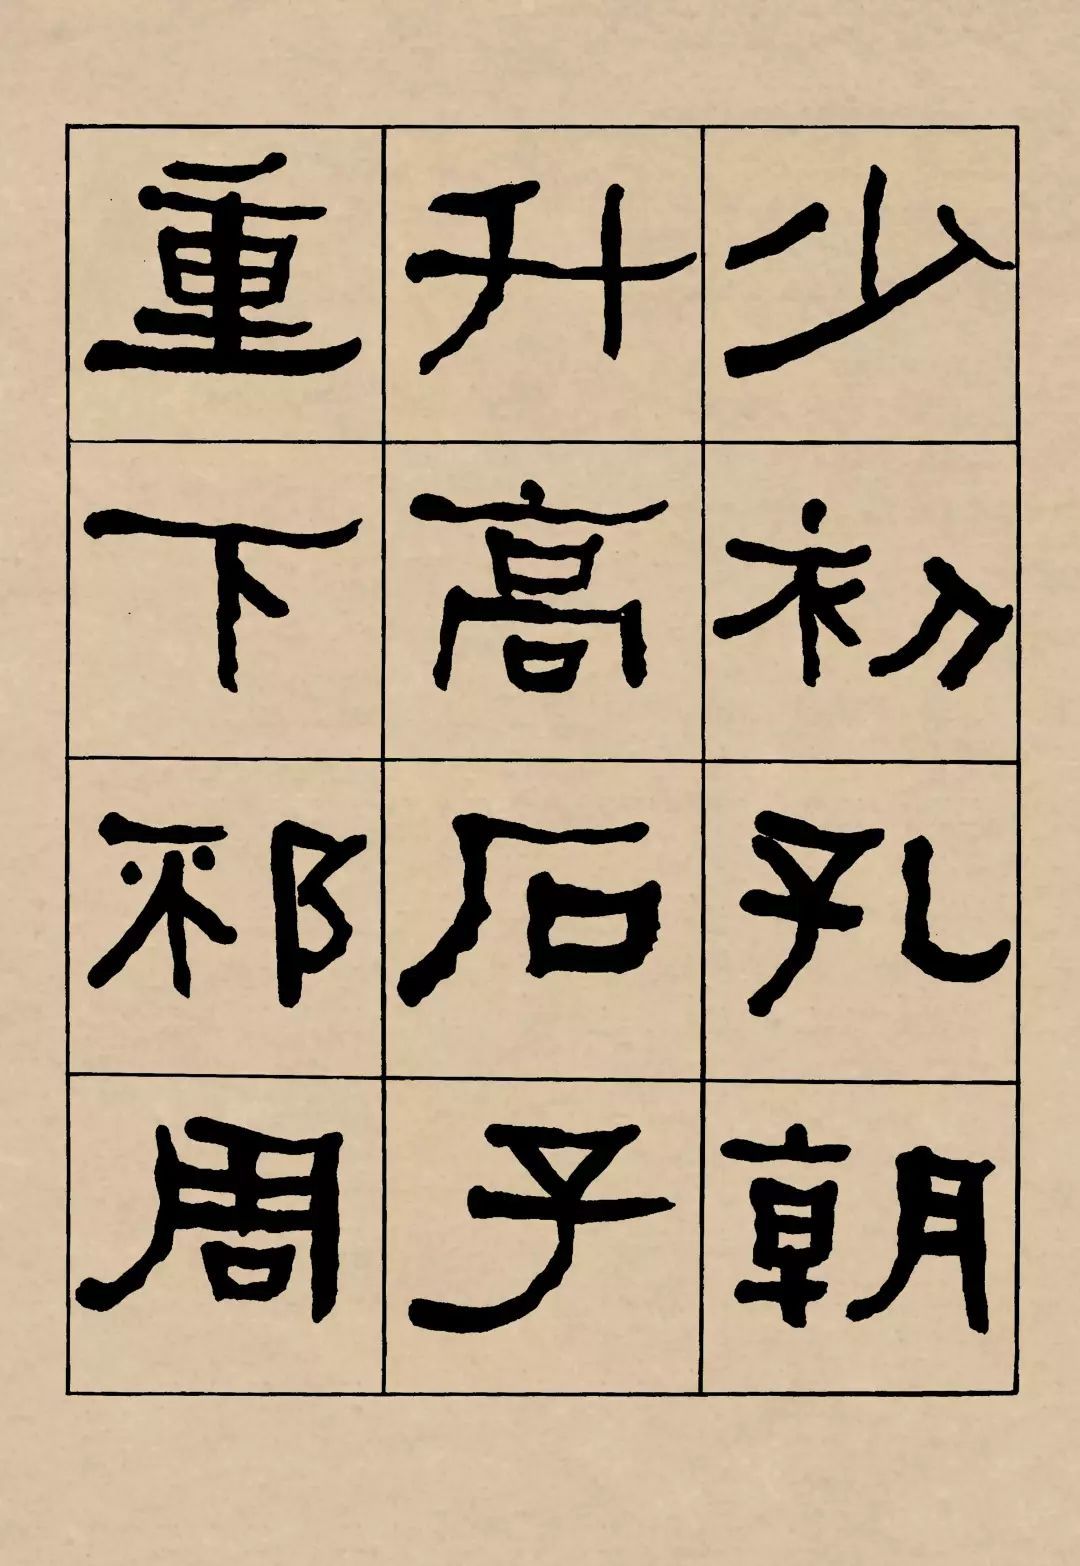 少初孔朝
升高石子
重下邳周